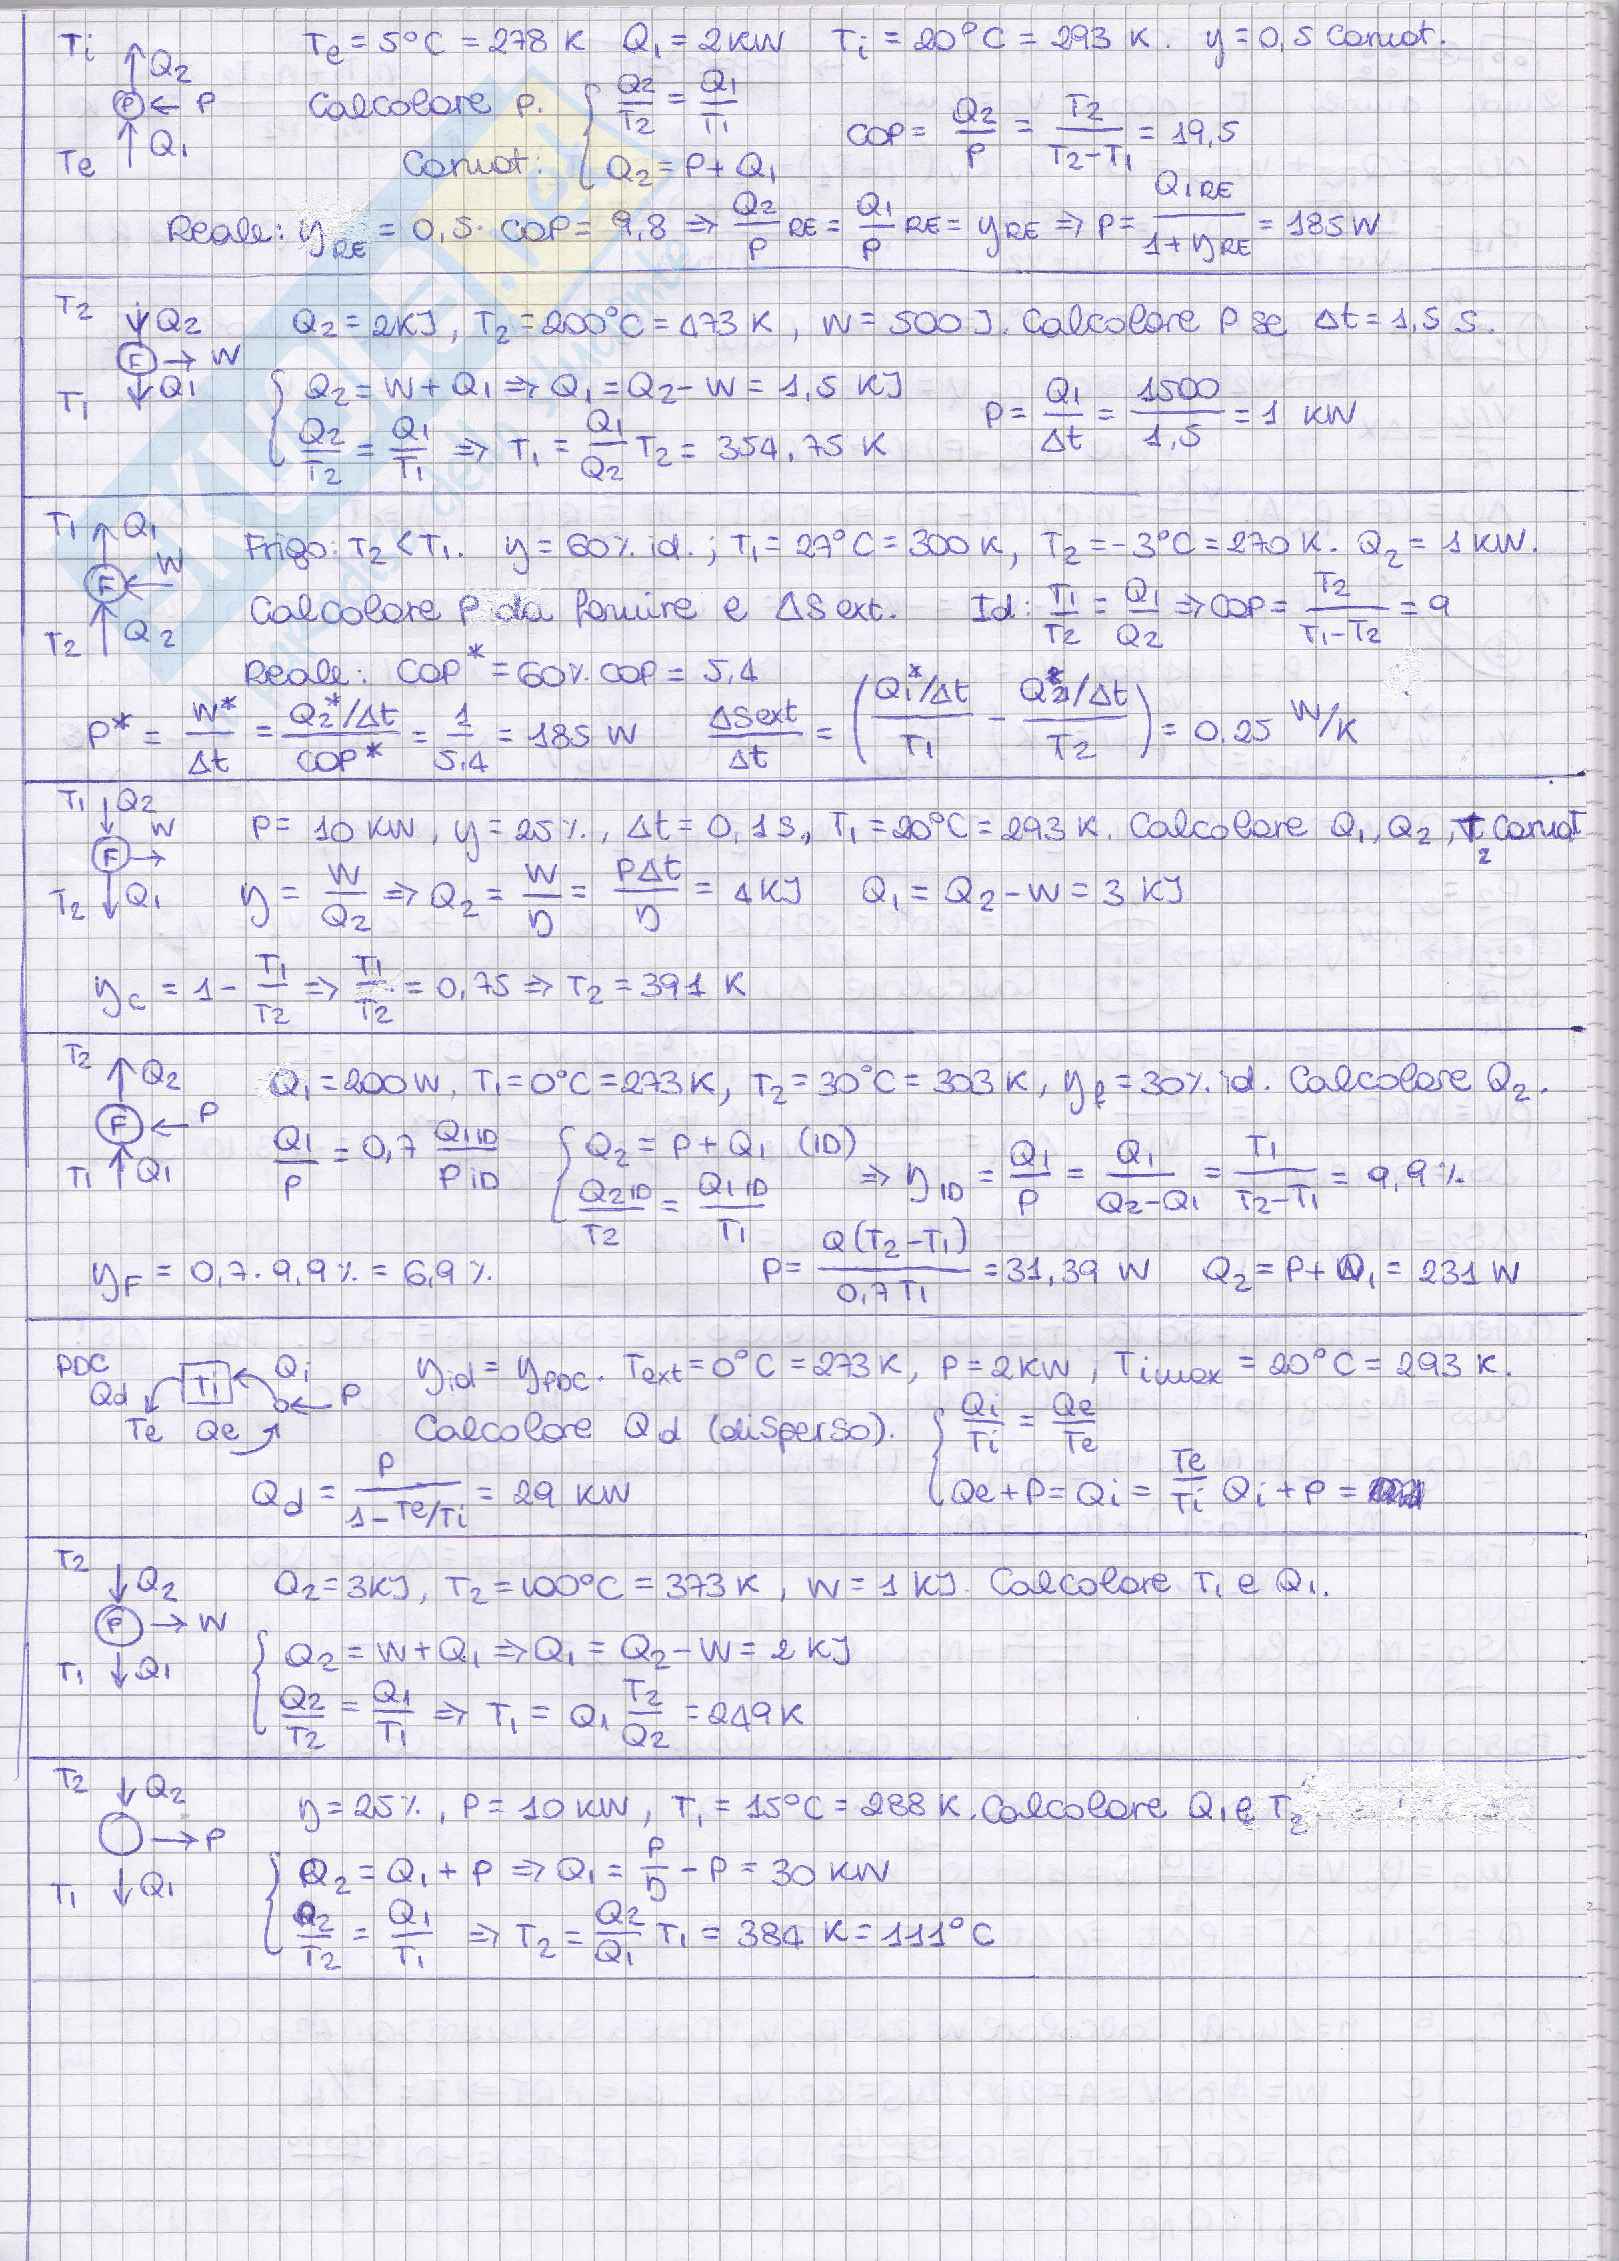 Ti Q2 P ← P Q1 Te
Te = 5°C = 278 K Q1 = 2 KW Ti = 20°C = 293 K. η = 0,5 Carnot.
Calcolare P. { Q2/T2 = Q1/T1 COP = Q2/P = T2/(T2-T1) = 19,5
Carnot: Q2 = P + Q1
Reale: ηRE = 0,5 · COP = 9,8 ⇒ Q2/P RE = Q1/P RE = ηRE ⇒ P = Q1RE/(1+ηRE) = 185 W
T2 Q2 F → W Q1 T1
Q2 = 2 KJ, T2 = 200°C = 473 K, W = 500 J. Calcolare P se Δt = 1,5 s.
{ Q2 = W + Q1 ⇒ Q1 = Q2 - W = 1,5 KJ P = Q1/Δt = 1500/1,5 = 1 KW
Q2/T2 = Q1/T1 ⇒ T1 = Q1/Q2 T2 = 354,75 K
T1 Q1 F W T2 Q2
Frigo: T2 < T1. η = 60% id.; T1 = 27°C = 300 K, T2 = -3°C = 270 K. Q2 = 1 KW.
Calcolare P da fornire e ΔS ext. Id: T1/T2 = Q1/Q2 ⇒ COP = T2/(T1-T2) = 9
Reale: COP* = 60% COP = 5,4
P* = W*/Δt = (Q2*/Δt)/COP* = 1/5,4 = 185 W ΔSext/Δt = (Q1*/Δt / T1 - Q2*/Δt / T2) = 0,25 W/K
T1 Q2 F → W T2 Q1
P = 10 KW, η = 25%, Δt = 0,1 s, T1 = 20°C = 293 K. Calcolare Q1, Q2, T2 Carnot
η = W/Q2 ⇒ Q2 = W/η = PΔt/η = 4 KJ Q1 = Q2 - W = 3 KJ
ηc = 1 - T1/T2 ⇒ T1/T2 = 0,75 ⇒ T2 = 391 K
T2 Q2 F ← P T1 Q1
Q1 = 200 W, T1 = 0°C = 273 K, T2 = 30°C = 303 K, ηf = 30% id. Calcolare Q2.
Q1/P = 0,7 Q1ID/PID { Q2 = P + Q1 (ID) ⇒ ηID = Q1/P = Q1/(Q2-Q1) = T1/(T2-T1) = 9,9%
Q2ID/T2 = Q1ID/T1
ηF = 0,7 · 9,9% = 6,9% P = Q(T2-T1)/0,7T1 = 31,39 W Q2 = P + Q1 = 231 W
PDC Qd Ti Qi ← P Te Qe
ηid = ηPDC. Text = 0°C = 273 K, P = 2 KW, Timax = 20°C = 293 K.
Calcolare Qd (disperso). { Qi/Ti = Qe/Te
Qd = P/(1-Te/Ti) = 29 KW Qe + P = Qi = Te/Ti Qi + P =
T2 Q2 P → W T1 Q1
Q2 = 3 KJ, T2 = 100°C = 373 K, W = 1 KJ. Calcolare T1 e Q1.
{ Q2 = W + Q1 ⇒ Q1 = Q2 - W = 2 KJ
Q2/T2 = Q1/T1 ⇒ T1 = Q1 T2/Q2 = 249 K
T2 Q2 → P T1 Q1
η = 25%, P = 10 KW, T1 = 15°C = 288 K. Calcolare Q1 e T2
{ Q2 = Q1 + P ⇒ Q1 = P/η - P = 30 KW
Q2/T2 = Q1/T1 ⇒ T2 = Q2/Q1 T1 = 384 K = 111°C